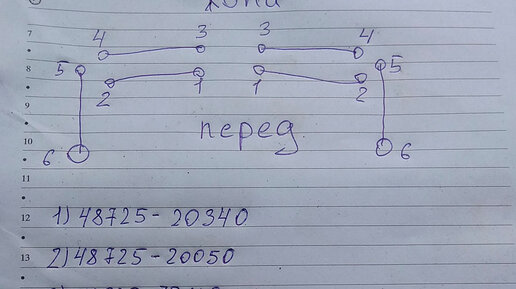 7
4 3 3 4
8 5 2 1 1 2 5
9
перед
10
6 6
11
12 1) 48725-20340
13 2) 48725-20050